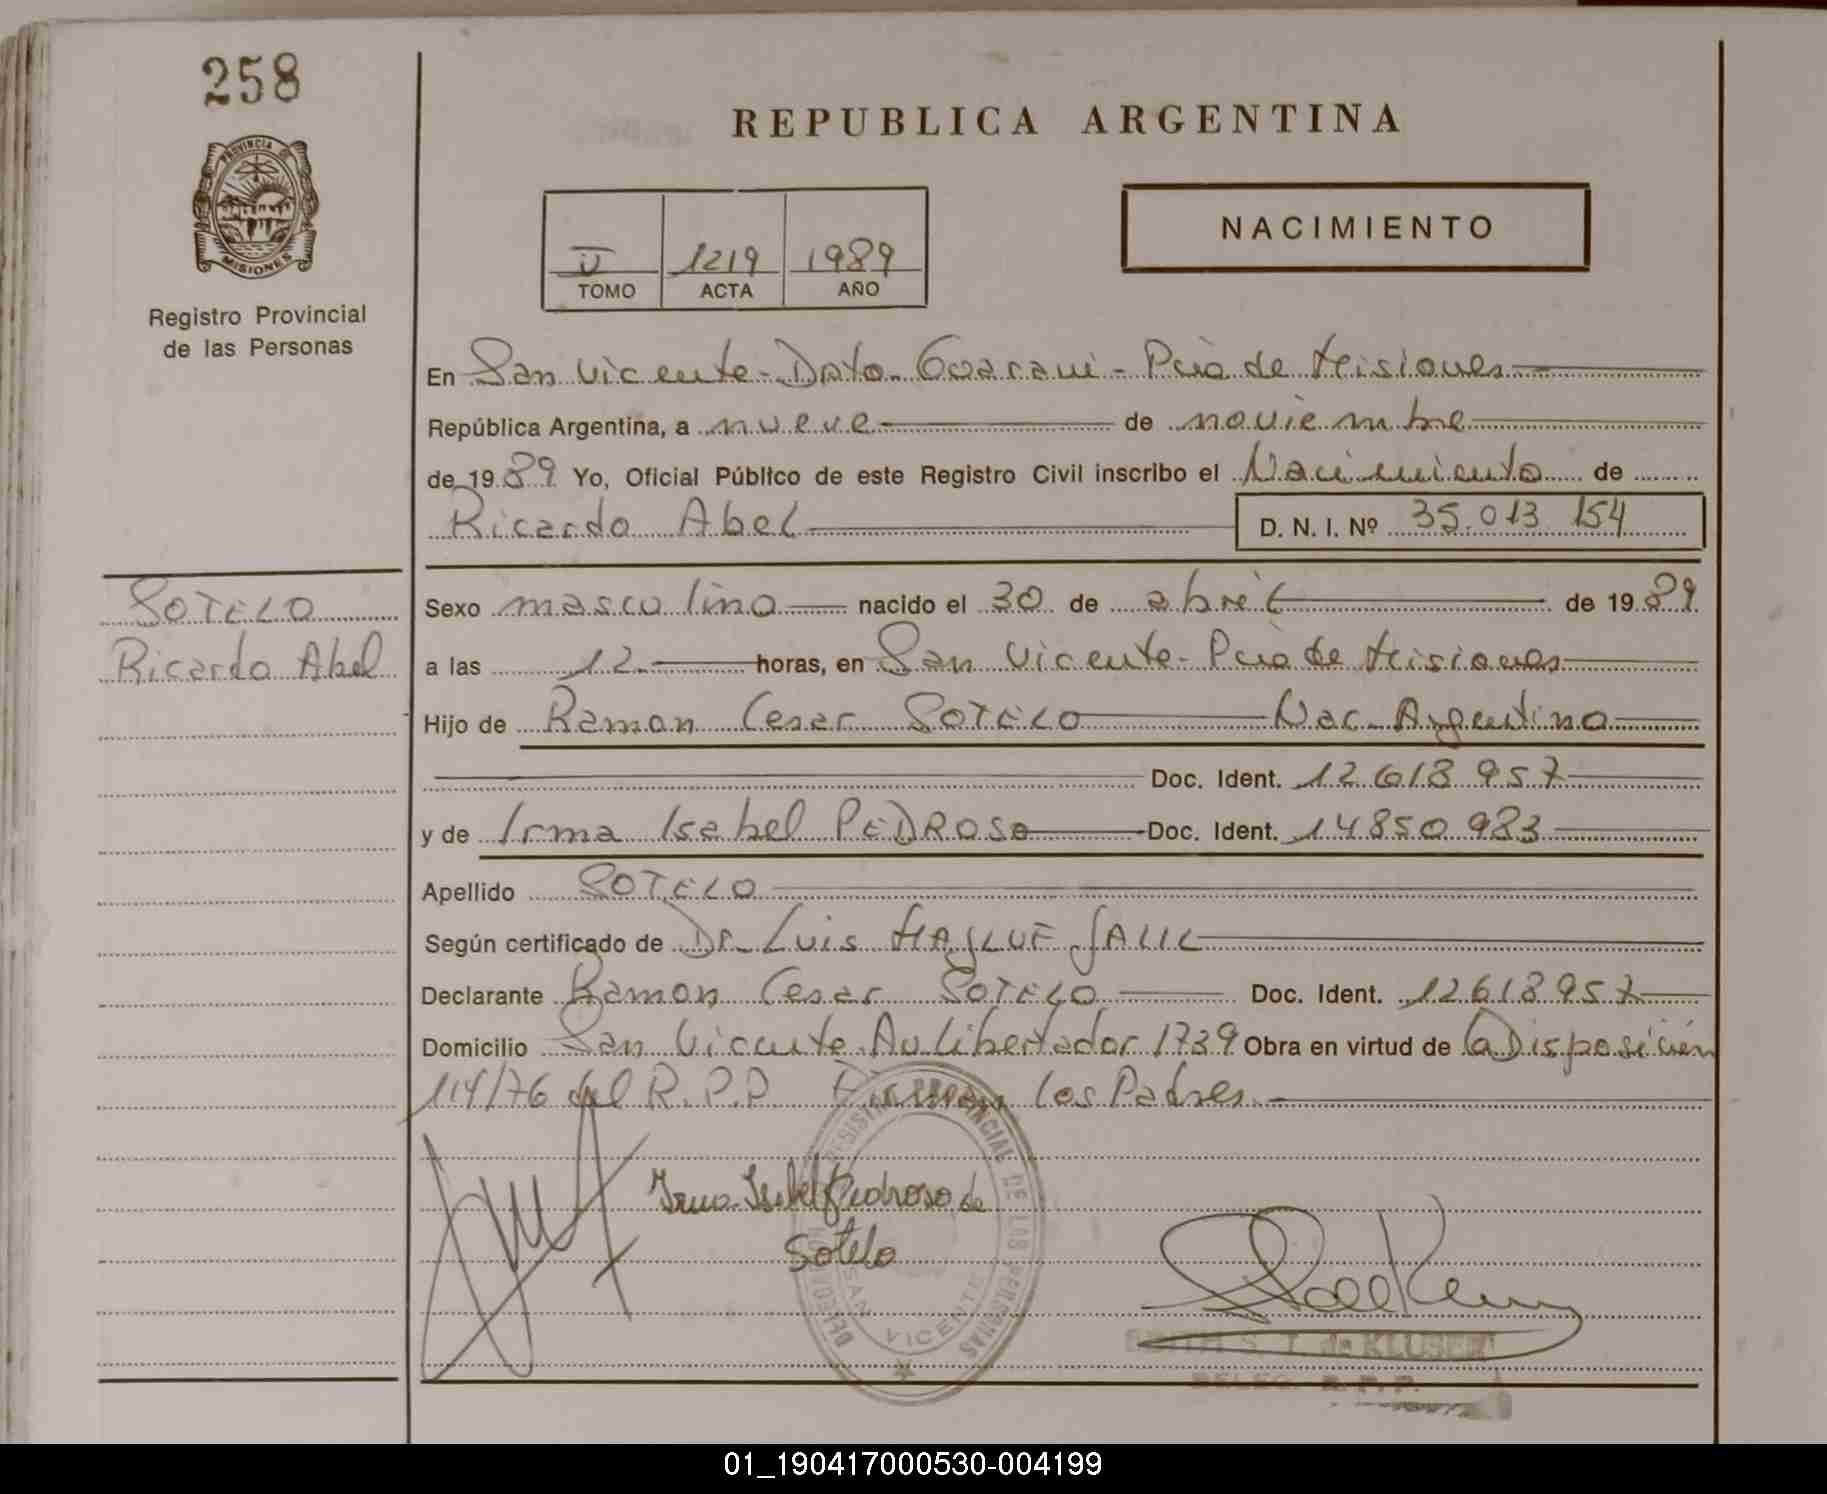 258
REPUBLICA ARGENTINA
PROVINCIA DE
MISIONES
Registro Provincial
de las Personas
NACIMIENTO
II 1219 1989
TOMO ACTA AÑO
En San Vicente - Dpto. Guarani - Pcia de Misiones
República Argentina, a nueve de noviembre
de 1989 Yo, Oficial Público de este Registro Civil inscribo el Nacimiento de
Ricardo Abel D. N. I. Nº 35.013 154
SOTELO
Ricardo Abel
Sexo masculino nacido el 30 de abril de 1989
a las 12 horas, en San Vicente - Pcia de Misiones
Hijo de Ramon Cesar SOTELO Nac. Argentina
Doc. Ident. 12 618 957
y de Irma Isabel PEDROSO Doc. Ident. 14850 983
Apellido SOTELO
Según certificado de Dr. Luis JALIL
Declarante Ramon Cesar SOTELO Doc. Ident. 12618957
Domicilio San Vicente Av Libertador 1739 Obra en virtud de la Disposición
114/76 del R.P.P. Firman los Padres
Irma Isabel Pedroso de
Sotelo
REGISTRO PROVINCIAL DE LAS PERSONAS
DELEGACION
SAN VICENTE
S. T. de KLUSENER
DELEG. R. P. P.
01_190417000530-004199